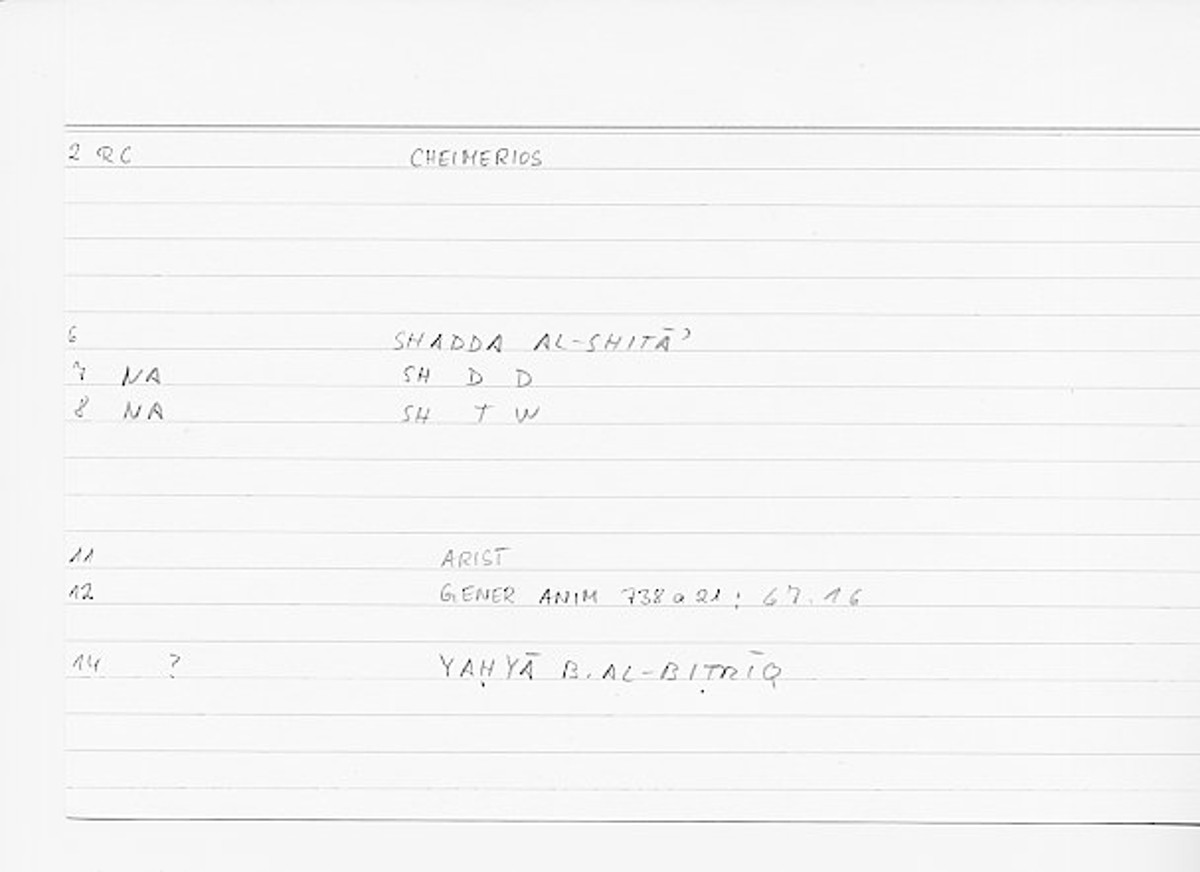 2 RC CHEIMERIOS
6 SHADDA AL-SHITĀʾ
7 NA SH D D
8 NA SH T W
11 ARIST
12 GENER ANIM 738a21; 67.16
14 ? YAḤYĀ B. AL-BIṬRĪQ